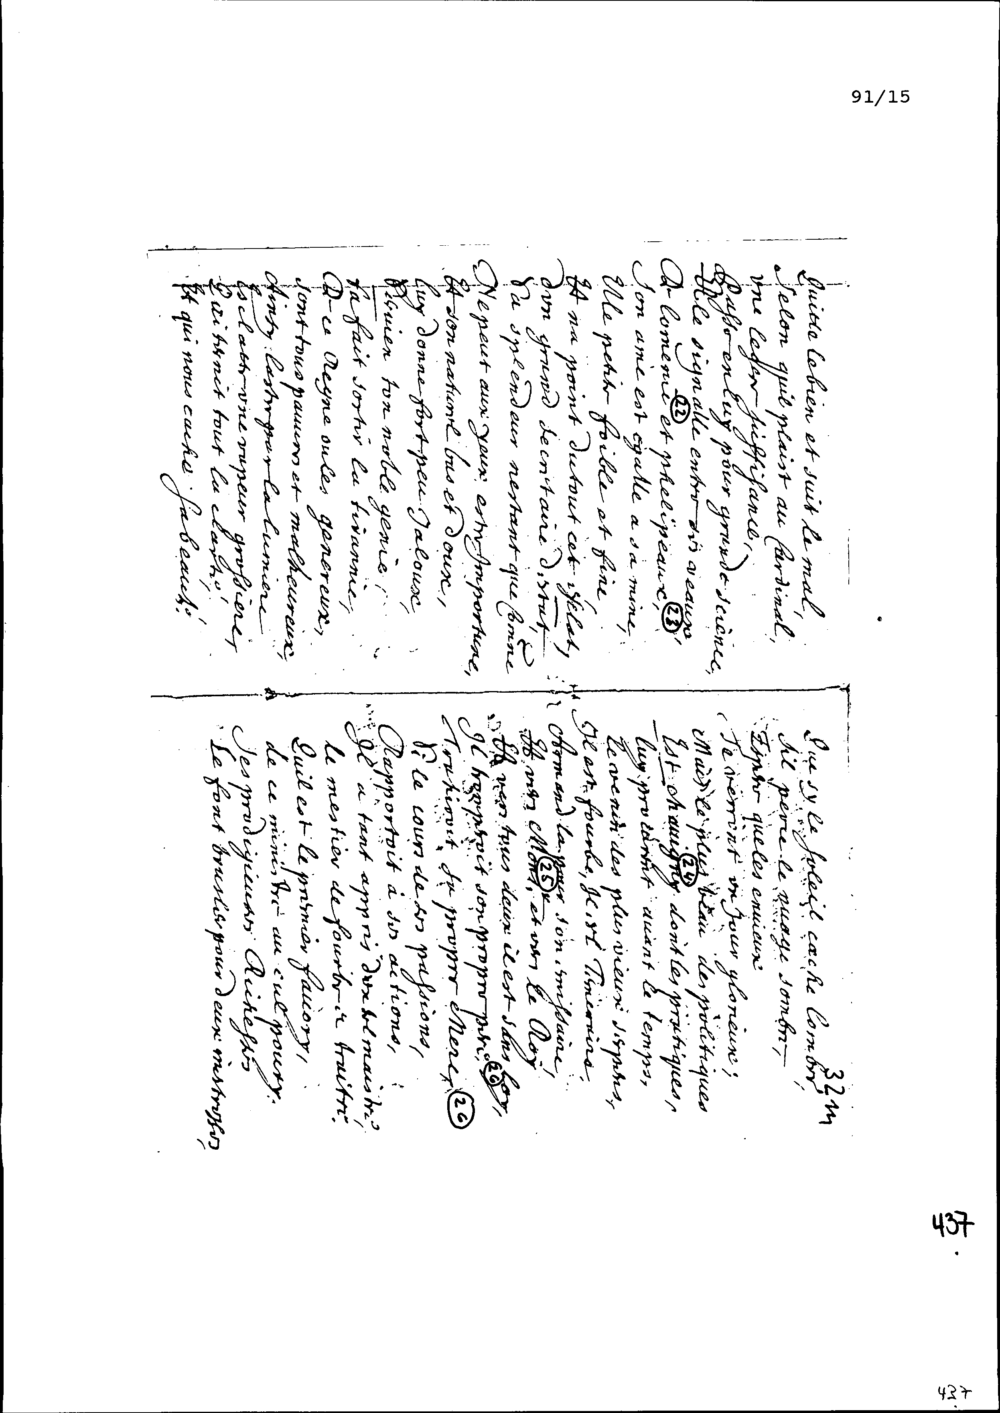 91/15
Quitte le bien et suit le mal,
Selon qu'il plaist au Cardinal,
une legere suffisance,
Passe en luy pour grande science,
Et le signalle entre dix veaux
De lomenie et phelipeaux,
22
23
Son ame est egalle a sa mine,
Elle petite foible et fine,
Et na point du tout cet esclat,
d'un grand Secretaire d'estat
Sa splendeur nestant que comme
Ne peut aux yeux estre Importune,
Et son naturel bas et doux,
luy donne fort peu Jaloux,
ton noble genie,
ta fait sortir la tirannie,
De ce Regne ou les genereux,
sont tous pauures et malheureux,
Ainsy lastre par la lumiere
esclatte une vapeur grossiere,
Qui ternit tout la clarté,
Et qui nous cache sa beauté.
32
Que sy le soleil cache lombre,
Sil perce le nuage sombre,
que les enuieux
Te verront un Jour glorieux;
Mais le plus beau des politiques
24
Est chauigny dont les pratiques,
luy produirent auant le temps,
Le venin des plus vieux serpents,
Il est fourbe, Il est Temeraire,
Armand la pour son emissaire,
25
Et vers Mons, et vers le Roy
Et vers tous deux il est sans foy,
Il trompoit son propre pere
26
Trahiroit sa propre Mere,
26
Si le cours de ses passions,
Rapportoit à ses actions,
Il a tant appris de son maistre,
le mestier de fourbe et traitre.
Quil est le premier fauory,
de ce ministre au cul poury.
Ses prodigieuses Richesses
Le font brusler pour deux maistresses,
437
437